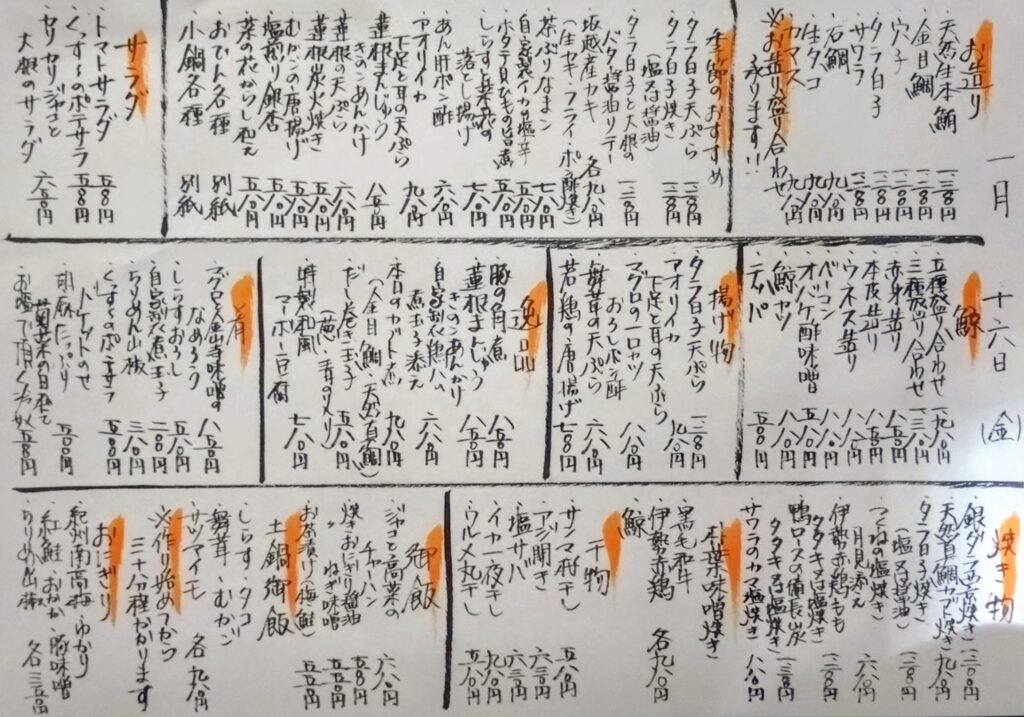 一月 十六日 (金)
お造り
・天然生本鮪 一二八〇円
・金目鯛 一二八〇円
・穴子 一二八〇円
・タラ白子 一二八〇円
・サワラ 一一八〇円
・石鯛 九八〇円
・生タコ 九八〇円
・カマス 九八〇円
※お造り盛り合わせ
承ります!!
季節のおすすめ
・タラ白子天ぷら 一二八〇円
・タラ白子焼き 一二八〇円
(塩or醤油)
・タラ白子と大根の
バター醤油ソテー 一二八〇円
・坂越産カキ 各九八〇円
(生カキ・フライ・ポン酢焼き)
・茶ぶりなまこ 七八〇円
・自家製イカの塩辛 五八〇円
・ホタテ貝ひもの旨煮
・しらすと菜我の
落とし揚げ 七八〇円
・あん肝ポン酢 六八〇円
・アオリイカ
下足と耳の天ぷら 九八〇円
・蓮根まんじゅう
きのこあんかけ 八五〇円
・蓮根の天ぷら 六八〇円
・蓮根炭火焼き 五八〇円
・むかごの唐揚げ 五八〇円
・塩煎り銀杏 五八〇円
・菜の花からし和え 五八〇円
・おでん各種 別紙
・小鍋各種 別紙
サラダ
・トマトサラダ 五八〇円
・くっすーのポテサラ 五八〇円
・セリセリジャコと
大根のサラダ 六五〇円
鯨
・五種盛り合わせ 一九八〇円
・三種盛り合わせ 一三八〇円
・赤身造り 八五〇円
・本皮造り 八五〇円
・ウネス造り 八八〇円
・ベーコン 八八〇円
・オバケ酢味噌 五八〇円
・鯨カツ 八八〇円
・テッパ 五五〇円
揚げ物
・タラ白子天ぷら 一二八〇円
・アオリイカ
下足と耳の天ぷら 九八〇円
・マグロの一口カツ
おろしポン酢 八八〇円
・舞茸の天ぷら 六八〇円
・若鶏の唐揚げ 七八〇円
逸品
・豚の角煮 八五〇円
・蓮根まんじゅう
きのこあんかけ 八五〇円
・自家製鶏ハム
煮玉子添え 六八〇円
・本日のカブト煮 九八〇円
(金目鯛、天然真鯛)
・だし巻き玉子 五八〇円
(葱、青のり入り)
・特製和風
マーボー豆腐 七八〇円
肴
・マグロと金山寺味噌の
なめろう 八五〇円
・しらすおろし 五八〇円
・自家製煮玉子 二〇〇円
・ちりめん山椒 三八〇円
・くっすーのポテサラ
バゲットのせ 五五〇円
・胡麻たっぷり
菊菜の白和え 五〇〇円
焼き物
・銀ダラ西京焼き 一二〇〇円
・天然真鯛カブト焼き 九八〇円
・タラ白子焼き
(塩or醤油) 一二八〇円
・つくねの塩焼き
月見添え 六八〇円
・伊勢赤鶏もも
タタキor塩焼き 一二五〇円
・鴨ロースの備長炭
タタキor塩焼き 一二八〇円
・サワラのカマ塩焼き 八八〇円
朴葉味噌焼き
・黒毛和牛
・伊勢赤鶏 各九八〇円
・鯨
干物
・サンマ丸干し 五八〇円
・アジ開き 六三〇円
・塩サバ 六三〇円
・イカ一夜干し 九八〇円
・ウルメ丸干し 五八〇円
御飯
・ジャコと高菜の
チャーハン 六八〇円
・焼きおにぎり醤油 五八〇円
・〃 ねぎ味噌 五五〇円
・お茶漬け(梅、鮭) 五五〇円
土鍋御飯
・しらす・タコ
・舞茸・むかご 各九八〇円
・サツマイモ
※作り始めてから
三十分程かかります
おにぎり
・紀州南高梅・ゆかり
・紅鮭・おかか・豚味噌
・ちりめん山椒 各三五〇円